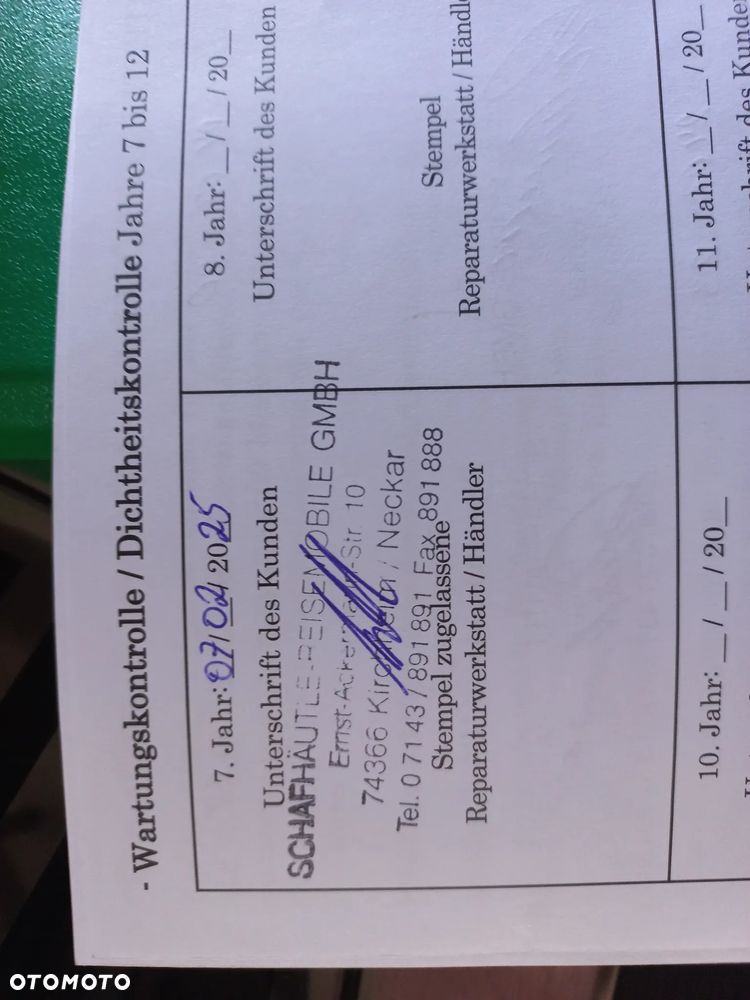 - Wartungskontrolle / Dichtheitskontrolle Jahre 7 bis 12
7. Jahr: 07/02/ 2025
Unterschrift des Kunden
SCHAFHÄUTLE-REISEMOBILE GMBH
Ernst-Ackermann-Str. 10
74366 Kirchheim / Neckar
Tel. 0 71 43 / 891 891 Fax 891 888
Stempel zugelassene
Reparaturwerkstatt / Händler
8. Jahr: __ / __ / 20__
Unterschrift des Kunden
Stempel
Reparaturwerkstatt / Händl
10. Jahr: __ / __ / 20__
11. Jahr: __ / __ / 20__
OTOMOTO